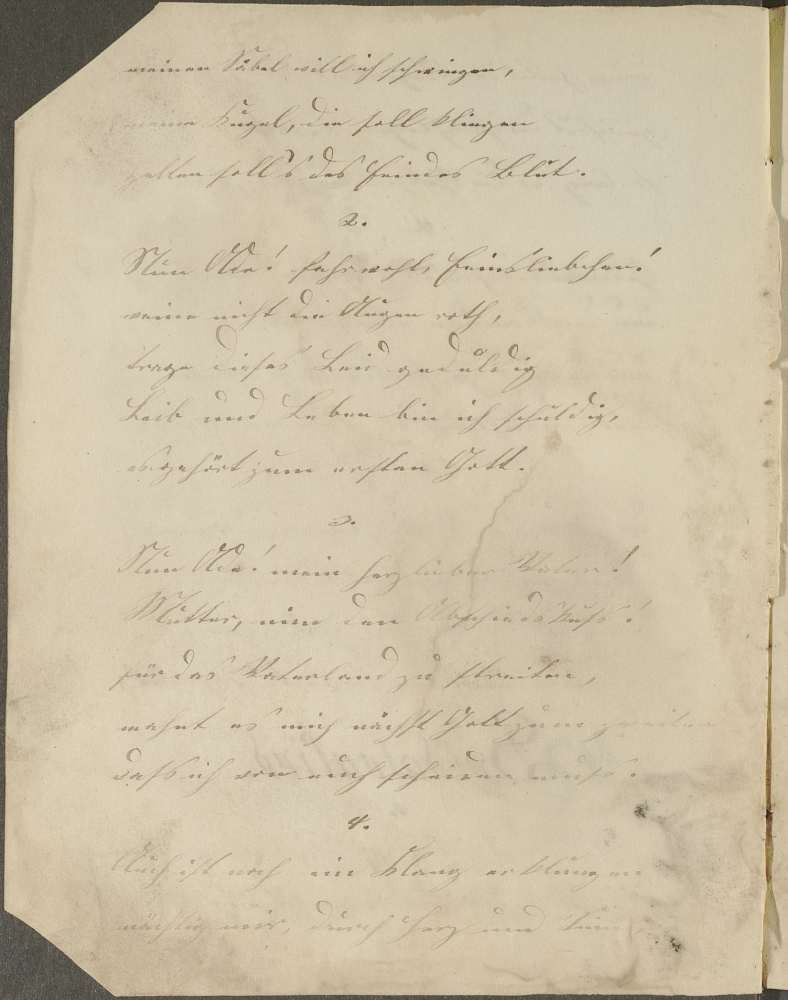 meinen Säbel will ich schwingen,
meine Kugel, die soll klingen
gelten soll's des Feindes Blut.
2.
Nun Ade! fahr wohl, Feinsliebchen!
weine nicht die Augen roth,
trage dieses Leid geduldig
Leib und Leben bin ich schuldig,
es gehört zum ersten Gott.
3.
Nun Ade! mein herzlieber Vater!
Mutter, nim den Abschiedskuss!
für das Vaterland zu streiten,
mahnt es mich nächst Gott zum zweiten
dass ich von euch scheiden muss.
4.
Auch ist noch ein Klang erklungen
mächtig mir, durch Herz und Sinn,